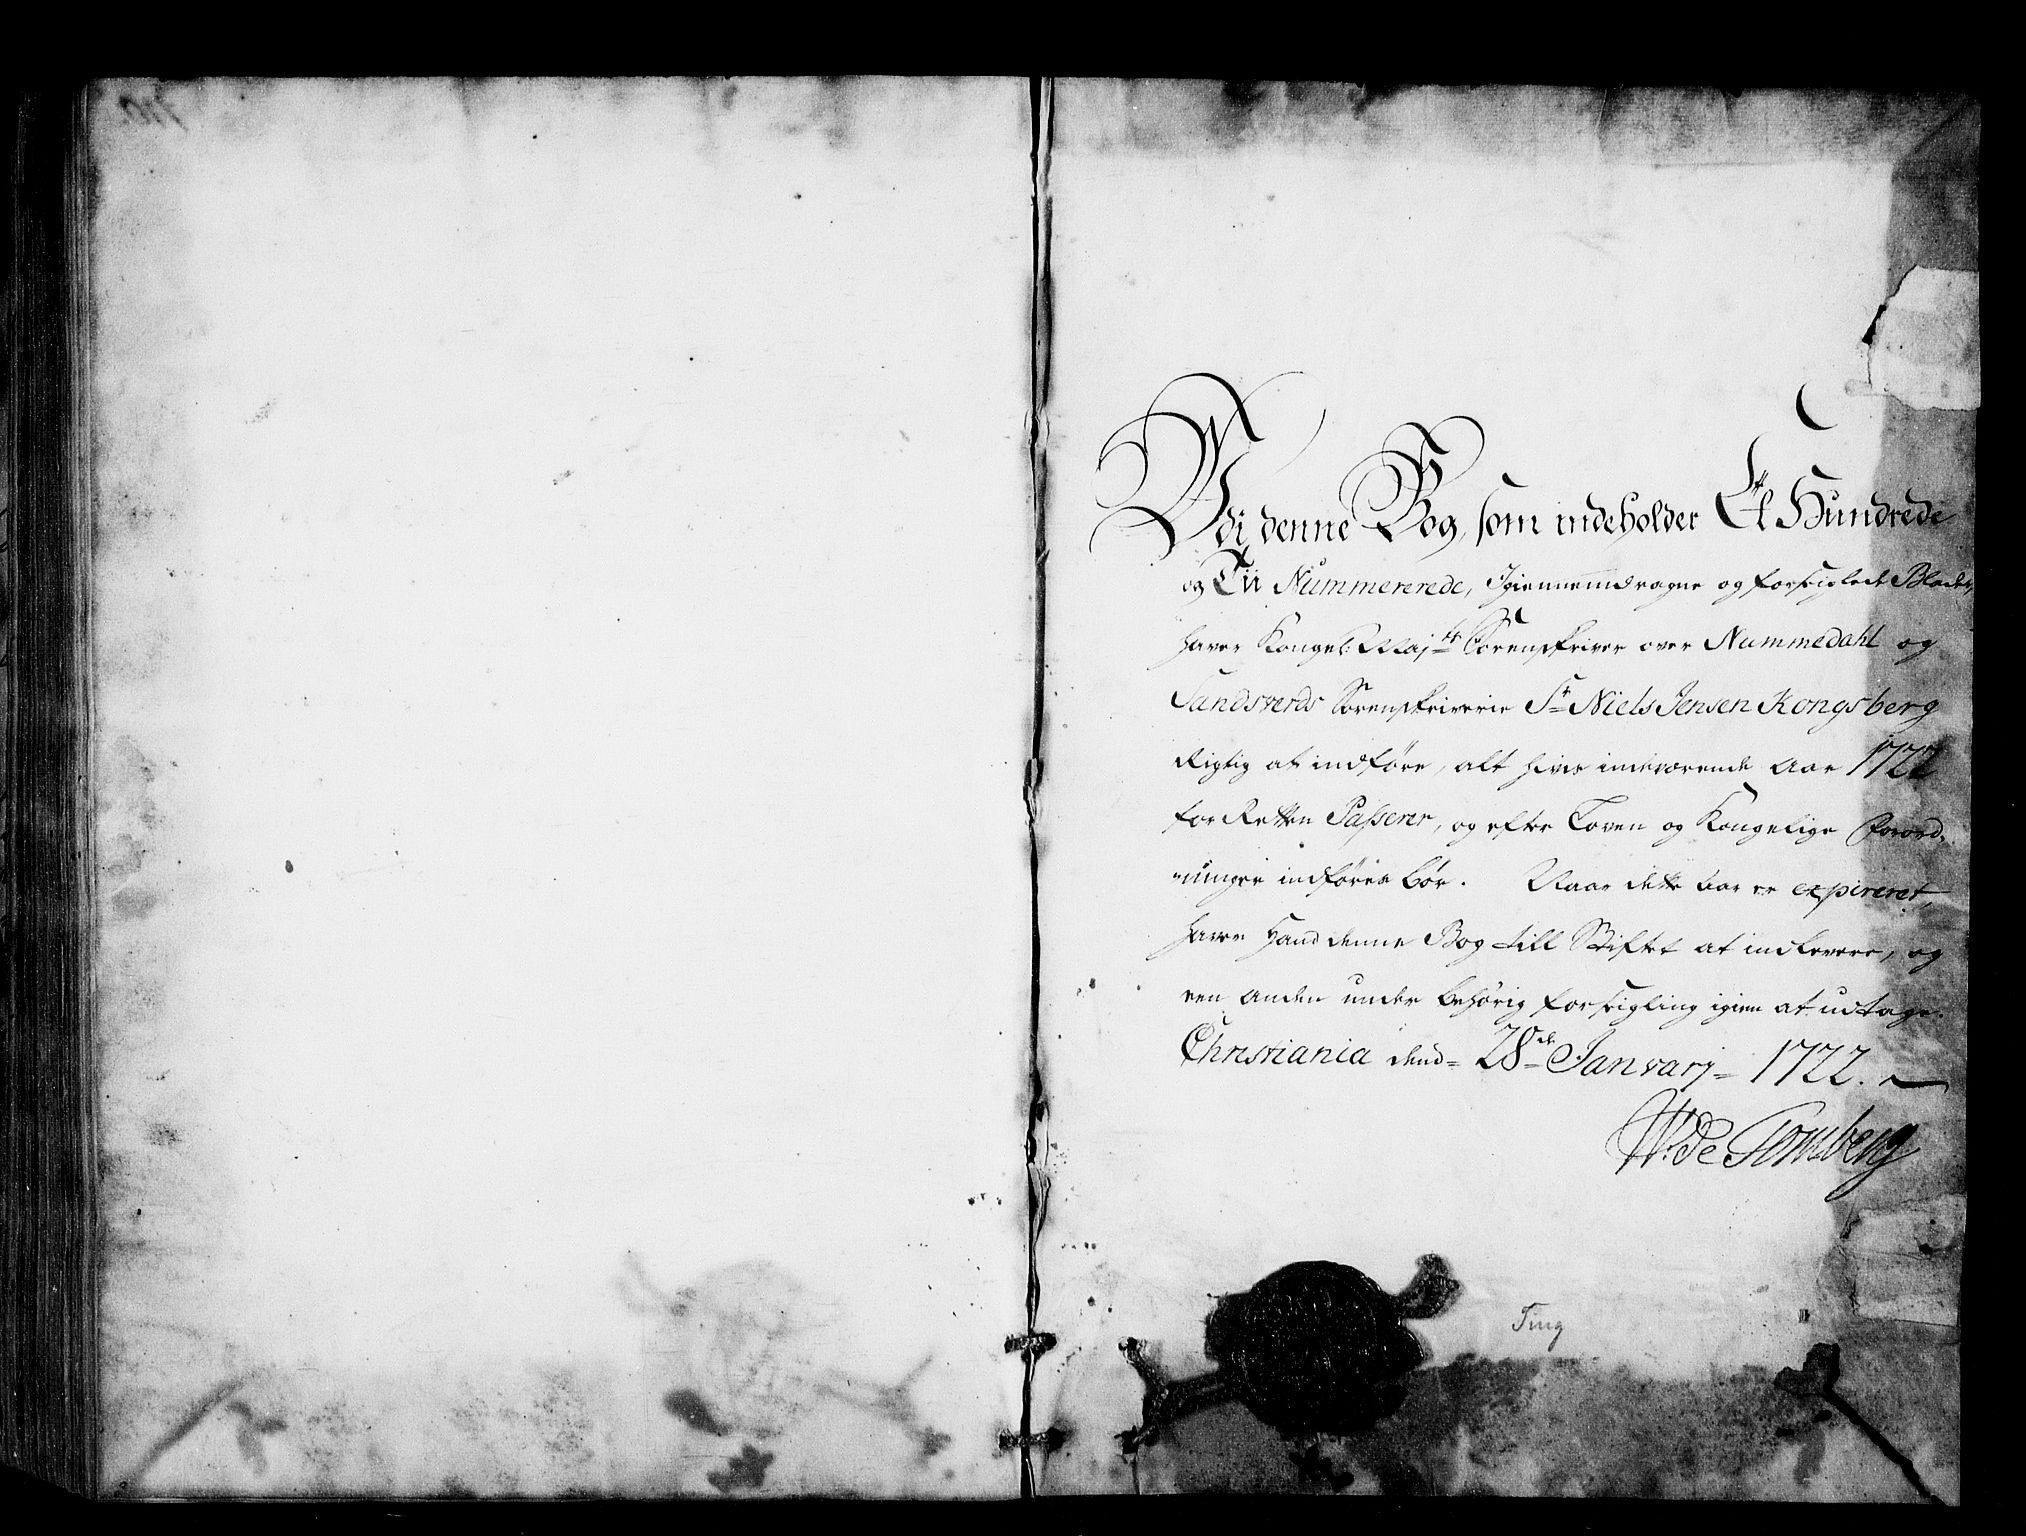 Udi denne Bog, som indeholder Et Hundrede
og Tii Nummererede, Igiennemdragne og forseiglede Blader,
haver Kongel: Maj:ts Sorenskriver over Nummedahl og
Sandsverds Sorenskriverie Sr Niels Jensen Kongsberg
Rigtig at indføre, alt hvis indeværende Aar 1722
for Retten Passerer, og efter Loven og Kongelige Forord-
ninger indføres bør. Naar dette Aar er expireret,
haver Hand denne Bog till Stiftet at indlevere, og
een anden under behørig forseigling igien at udtage.
Christiania dend 28de Januarij 1722.
W: de Tomberg
Ting